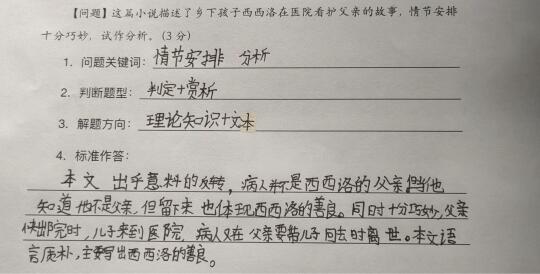 【问题】这篇小说描述了乡下孩子西西洛在医院看护父亲的故事，情节安排
十分巧妙，试作分析。（3 分）
1. 问题关键词：情节安排 分析
2. 判断题型：判定+赏析
3. 解题方向：理论知识+文本
4. 标准作答：
本文 出乎意料的反转，病人并不是西西洛的父亲，当他
知道他不是父亲，但留下来也体现西西洛的善良。同时十分巧妙，父亲
快出院时，儿子来到医院，病人又在父亲要带儿子回去时离世。本文语
言质朴，主要写出西西洛的善良。